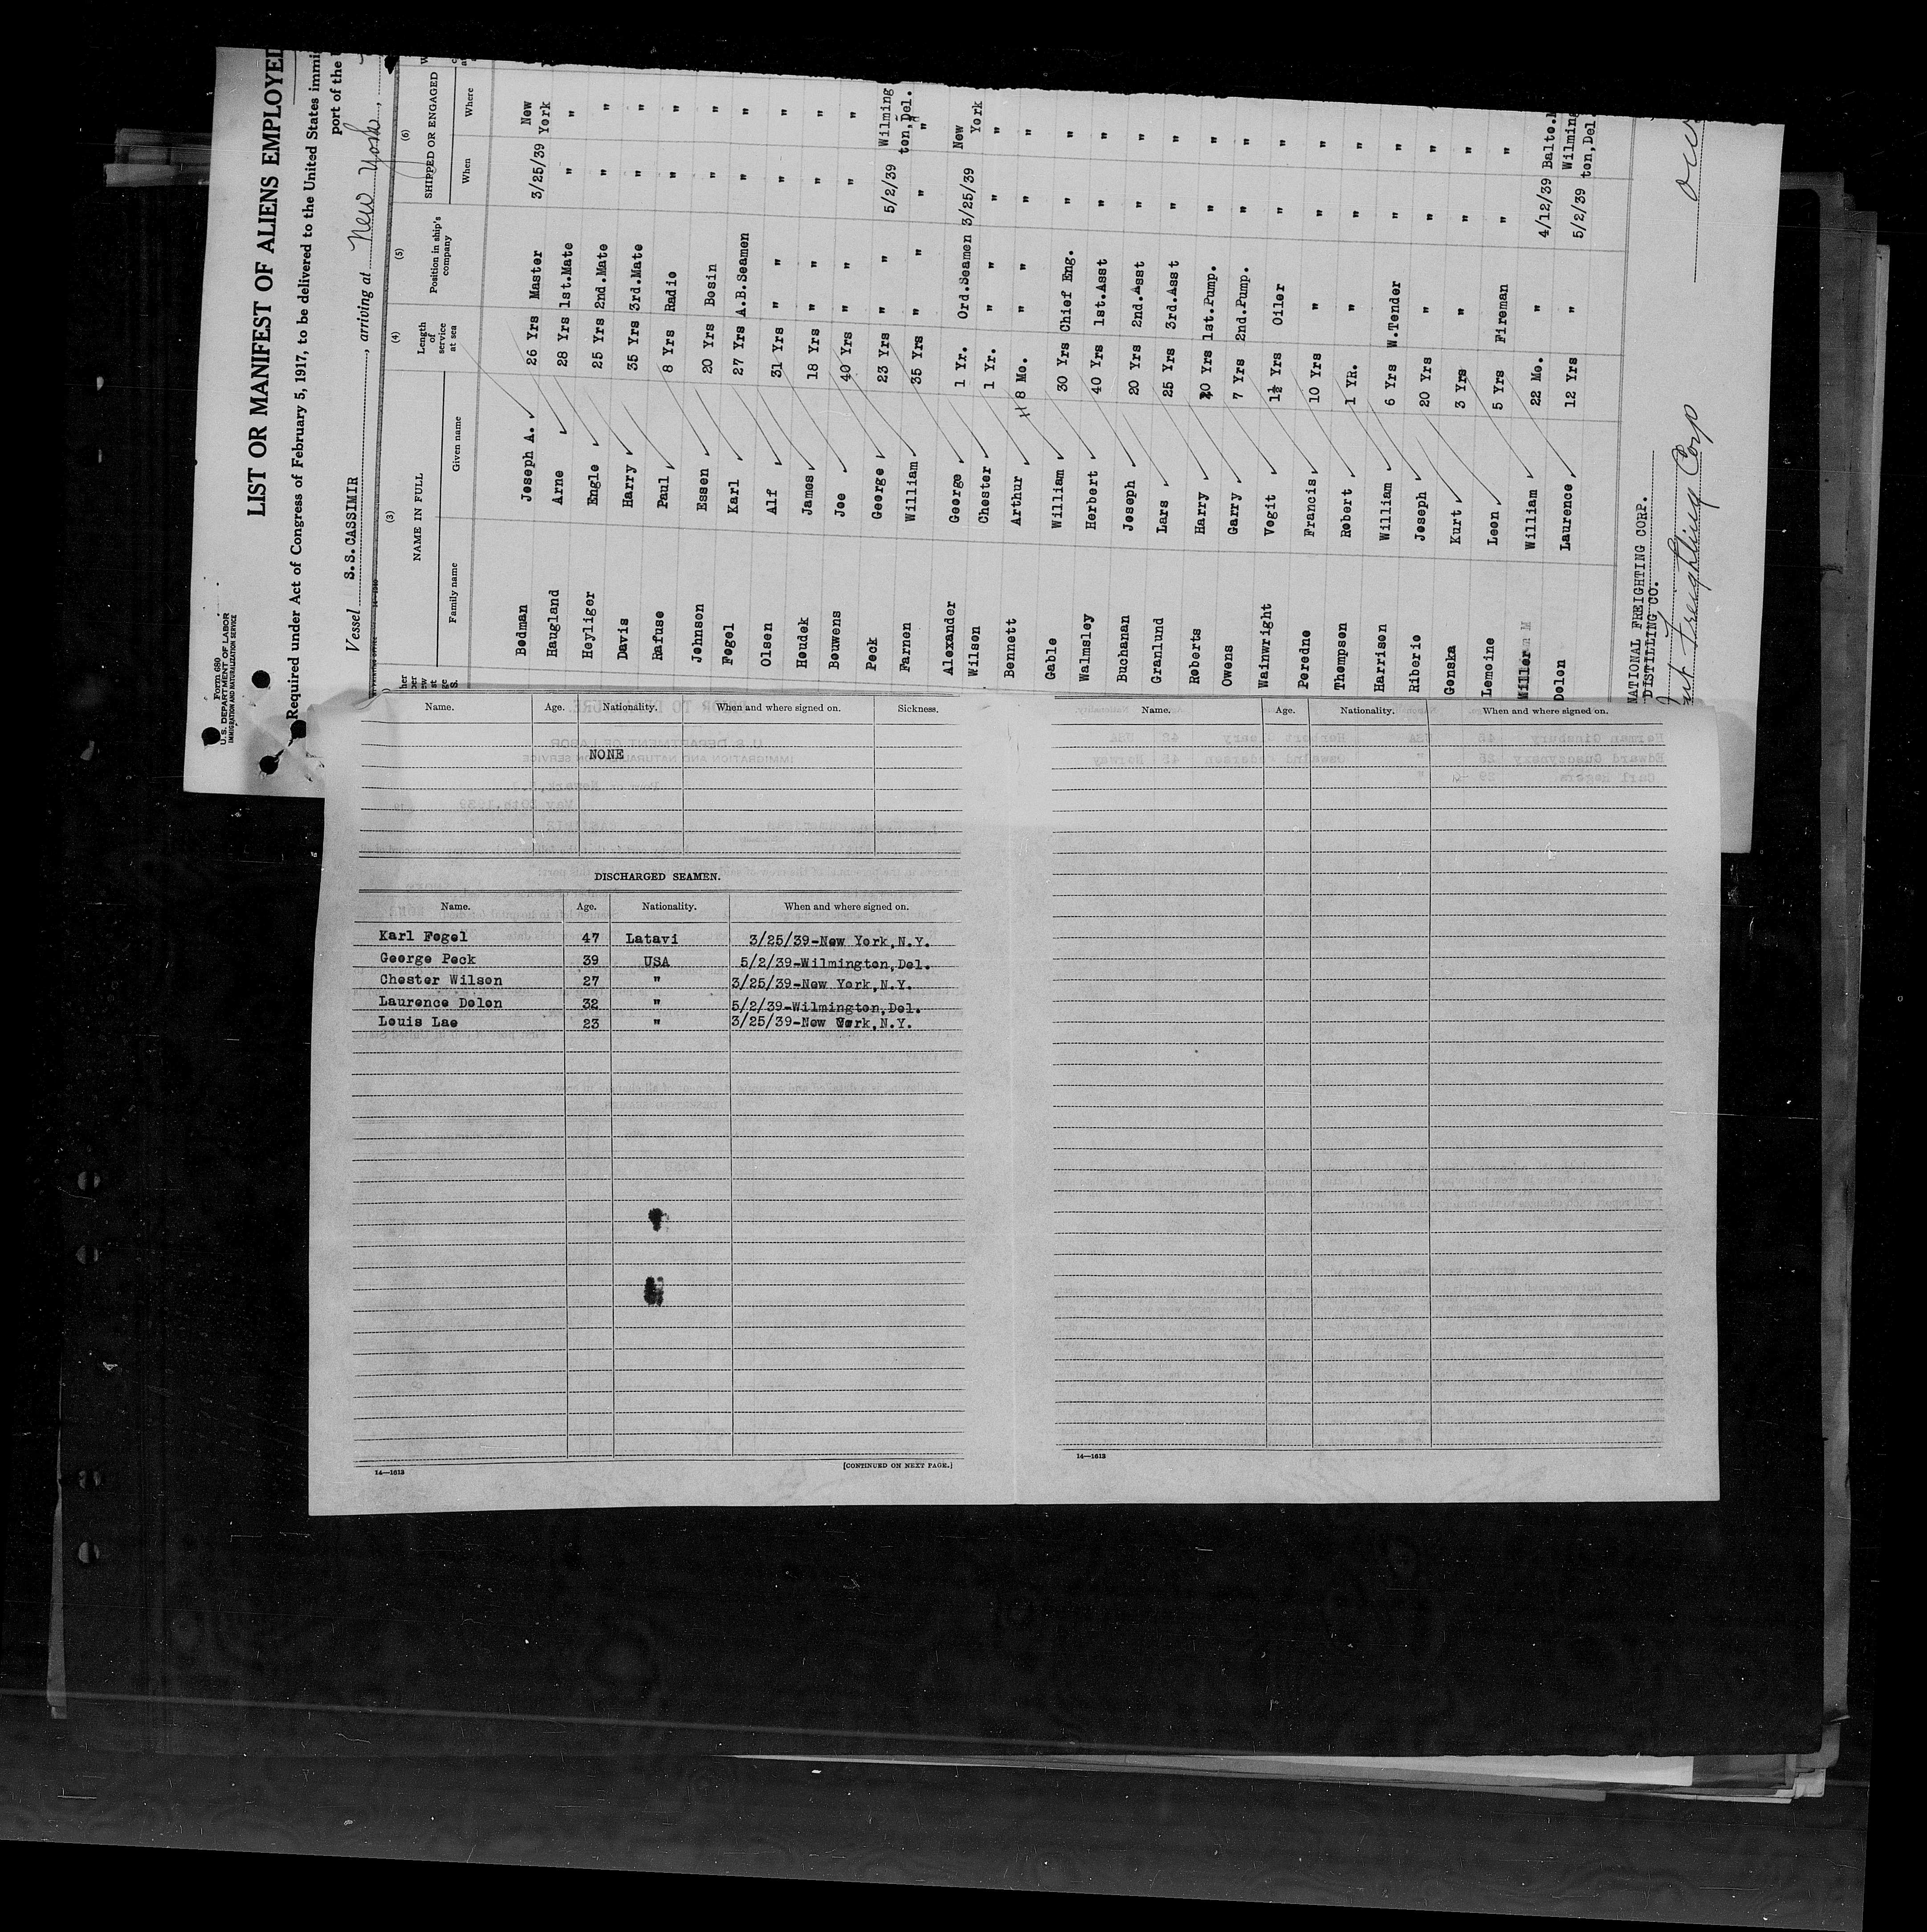 Form 680
U.S. DEPARTMENT OF LABOR
IMMIGRATION AND NATURALIZATION SERVICE
LIST OR MANIFEST OF ALIENS EMPLOYED
Required under Act of Congress of February 5, 1917, to be delivered to the United States immi
port of the
Vessel S.S. CASSIMIR, arriving at New York,
(3) (4) (5) (6)
NAME IN FULL Length of service at sea Position in ship's company SHIPPED OR ENGAGED
Family name Given name When Where
Bedman Joseph A. 26 Yrs Master 3/25/39 New York
Haugland Arne 28 Yrs 1st.Mate " "
Heyliger Engle 25 Yrs 2nd.Mate " "
Davis Harry 35 Yrs 3rd.Mate " "
Rafuse Paul 8 Yrs Radio " "
Johnson Essen 20 Yrs Bosin " "
Fogel Karl 27 Yrs A.B.Seamen " "
Olsen Alf 31 Yrs " " "
Houdek James 18 Yrs " " "
Bouwens Joe 40 Yrs " " "
Peck George 23 Yrs " 5/2/39 Wilmington,Del.
Farnen William 35 Yrs " " "
Alexander George 1 Yr. Ord.Seamen 3/25/39 New York
Wilson Chester 1 Yr. " " "
Bennett Arthur 8 Mo. " " "
Gable William 30 Yrs Chief Eng. " "
Walmsley Herbert 40 Yrs 1st.Asst " "
Buchanan Joseph 20 Yrs 2nd.Asst " "
Granlund Lars 25 Yrs 3rd.Asst " "
Roberts Harry 20 Yrs 1st.Pump. " "
Owens Garry 7 Yrs 2nd.Pump. " "
Wainwright Vogit 1½ Yrs Oiler " "
Peredne Francis 10 Yrs " " "
Thompson Robert 1 YR. " " "
Harrison William 6 Yrs W.Tender " "
Riberie Joseph 20 Yrs " " "
Genska Kurt 3 Yrs " " "
Lemoine Leon 5 Yrs Fireman " "
Miller William 22 Mo. " 4/12/39 Balto.
Dolon Laurence 12 Yrs " 5/2/39 Wilmington,Del.
NATIONAL FREIGHTING CORP.
DISTILLING CO.
Freighting Corp
Name. Age. Nationality. When and where signed on. Sickness.
NONE
DISCHARGED SEAMEN.
Name. Age. Nationality. When and where signed on.
Karl Fogel 47 Latavi 3/25/39-New York,N.Y.
George Peck 39 USA 5/2/39-Wilmington,Del.
Chester Wilson 27 " 3/25/39-New York,N.Y.
Laurence Dolon 32 " 5/2/39-Wilmington,Del.
Louis Lae 23 " 3/25/39-New York,N.Y.
14—1613
[CONTINUED ON NEXT PAGE.]
Name. Age. Nationality. When and where signed on.
14—1613